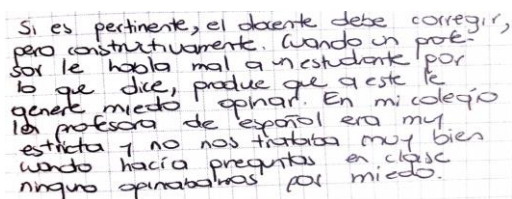 Si es pertinente, el docente debe corregir,
pero constructivamente. Cuando un profe-
sor le habla mal a un estudiante por
lo que dice, produe que a este le
genere miedo opinar. En mi colegio
la profesora de español era muy
estricta y no nos trataba muy bien
cuando hacía preguntas en clase
ninguno opinabamos por miedo.